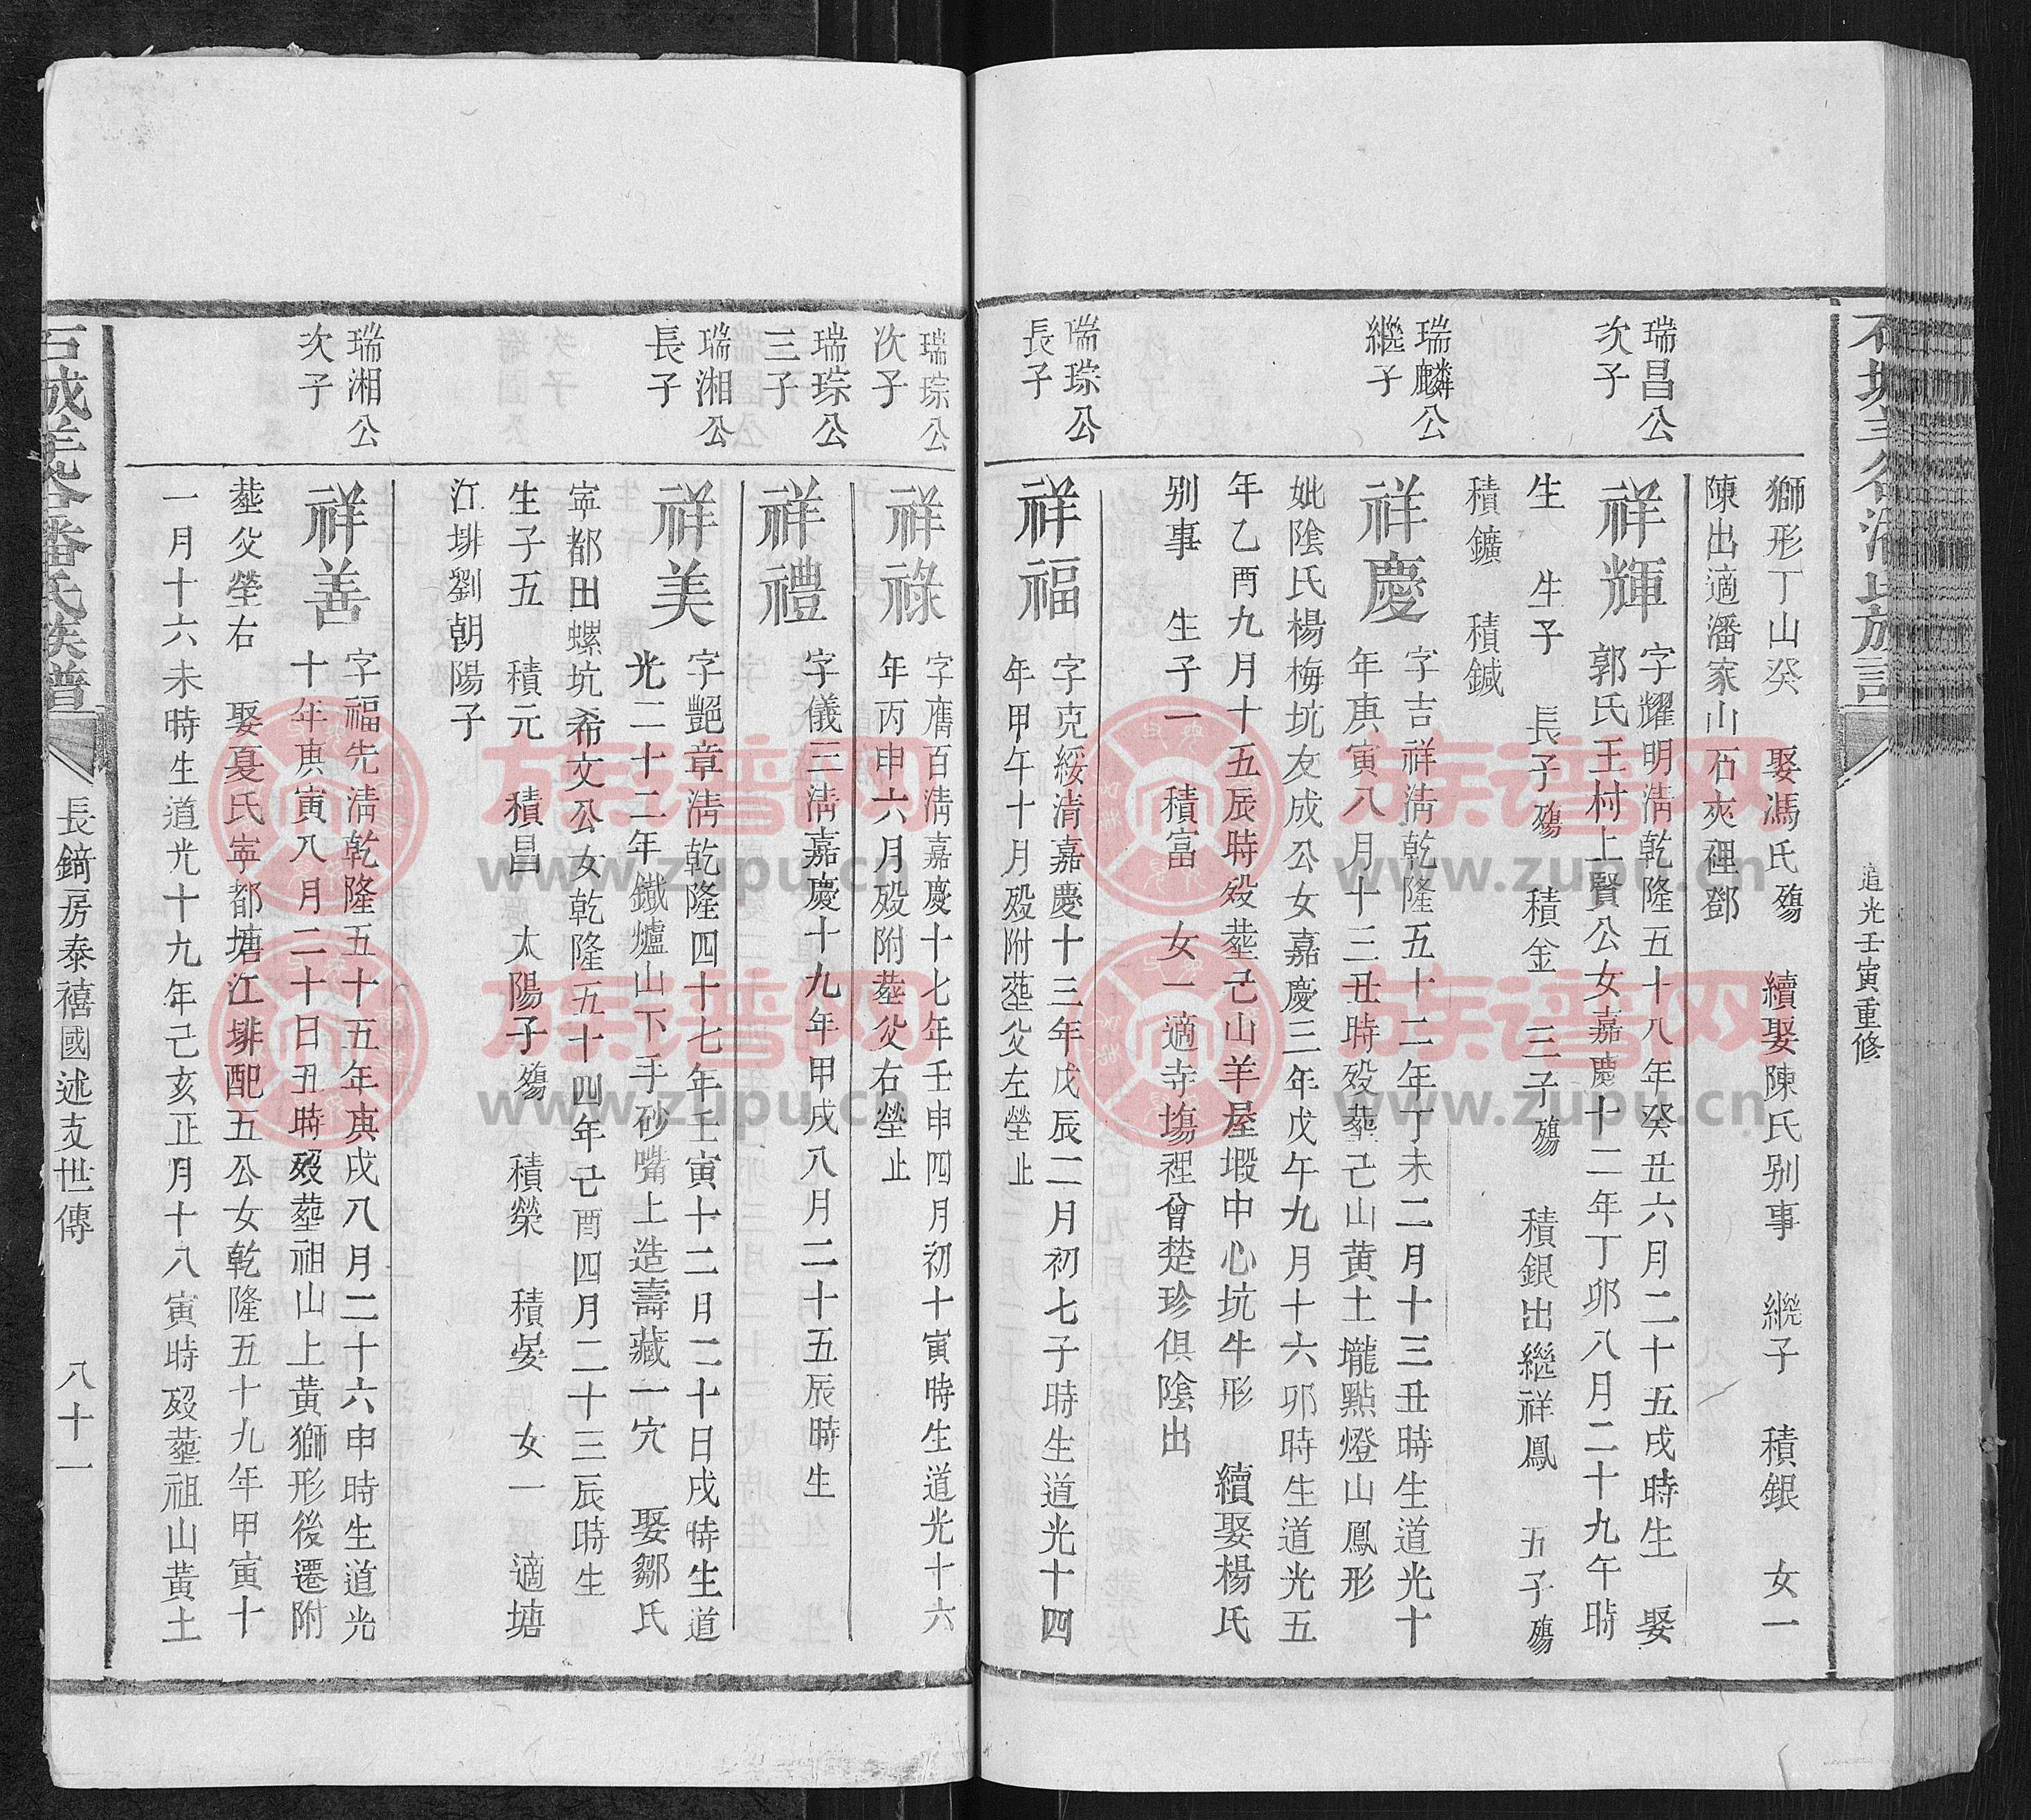 道光壬寅重修
獅形丁山癸　娶馮氏殤　續娶陳氏别事　繼子　積銀　女一
陳出適潘家山石夾裡鄧
瑞昌公
次子
祥輝
字耀明清乾隆五十八年癸丑六月二十五戌時生　娶
郭氏王村上賢公女嘉慶十二年丁卯八月二十九午時
生　生子　長子殤　積金　三子殤　積銀出繼祥鳳　五子殤
積鑛　積鍼
瑞麟公
繼子
祥慶
字吉祥清乾隆五十二年丁未二月十三丑時生道光十
年庚寅八月十三丑時殁塟己山黄土壠點燈山鳳形
妣陰氏楊梅坑友成公女嘉慶三年戊午九月十六卯時生道光五
年乙酉九月十五辰時殁塟己山羊屋塅中心坑牛形　續娶楊氏
别事　生子一　積富　女一適寺塲裡曾楚珍俱陰出
瑞琮公
長子
祥福
字克綏清嘉慶十三年戊辰二月初七子時生道光十四
年甲午十月殁附塟父左塋止
瑞琮公
次子
祥祿
字膺百清嘉慶十七年壬申四月初十寅時生道光十六
年丙申六月殁附塟父右塋止
瑞琮公
三子
祥禮
字儀三清嘉慶十九年甲戌八月二十五辰時生
瑞湘公
長子
祥美
字艷章清乾隆四十七年壬寅十二月二十日戌時生道
光二十二年鐵爐山下手砂嘴上造壽藏一穴　娶鄒氏
寧都田螺坑希文公女乾隆五十四年己酉四月二十三辰時生
生子五　積元　積昌　太陽子殤　積榮　積晏　女一　適塘
江排劉朝陽子
瑞湘公
次子
祥善
字福先清乾隆五十五年庚戌八月二十六申時生道光
十年庚寅八月二十日丑時殁塟祖山上黃獅形後遷附
塟父塋右　娶夏氏寧都塘江排配五公女乾隆五十九年甲寅十
一月十六未時生道光十九年己亥正月十八寅時殁塟祖山黃土
石城羊谷潘氏族譜
長錡房泰禧國述支世傳
八十一